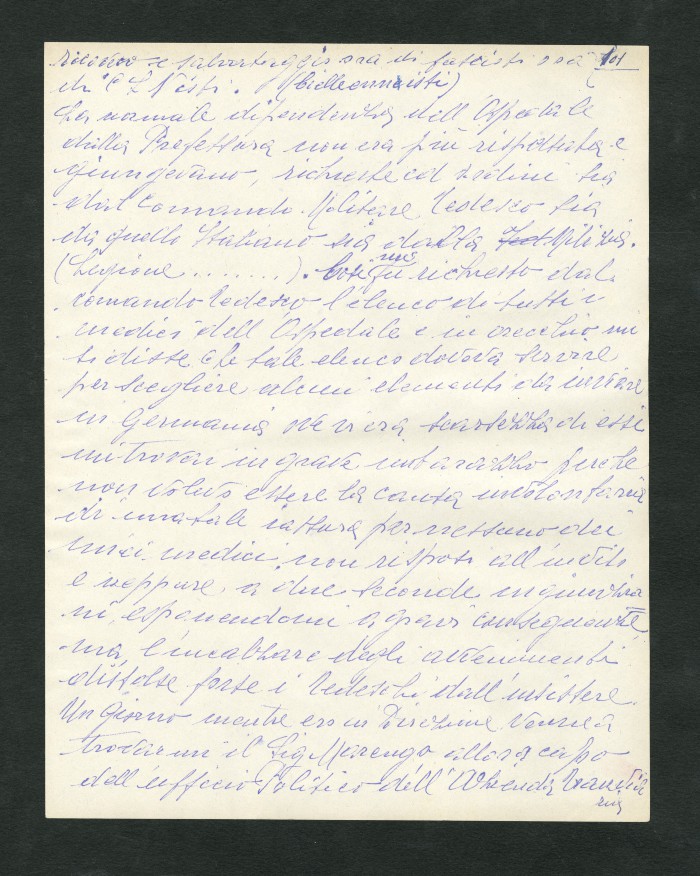 ricovero e salvataggio ora di fascisti ora 101
di C L Nisti. (biellennisti)
La normale dipendenza dell'Ospedale
dalla Prefettura non era più rispettata e
giungevano, richieste ed ordini sia
dal Comando Militare Tedesco sia
da quello Italiano sia dalla Milizia.
(Legione ........). Così mi fu richiesto dal
comando Tedesco l'elenco di tutti i
medici dell'Ospedale e in orecchio mi
si disse che tale elenco doveva servire
per scegliere alcuni elementi da inviare
in Germania ove vi era scarsezza di essi
mi trovai in grave imbarazzo perché
non volevo essere la causa involontaria
di una tale iattura per nessuno dei
miei medici, non risposi all'invito
e neppure a due seconde ingiunzio
ni, esponendomi a gravi conseguenze
ma l'incalzare degli avvenimenti
distolse forse i Tedeschi dall'insistere.
Un Giorno mentre ero in Direzione venne a
trovarmi il Sig Marengo allora capo
dell'ufficio Politico dell'Azienda Tranvia
ria